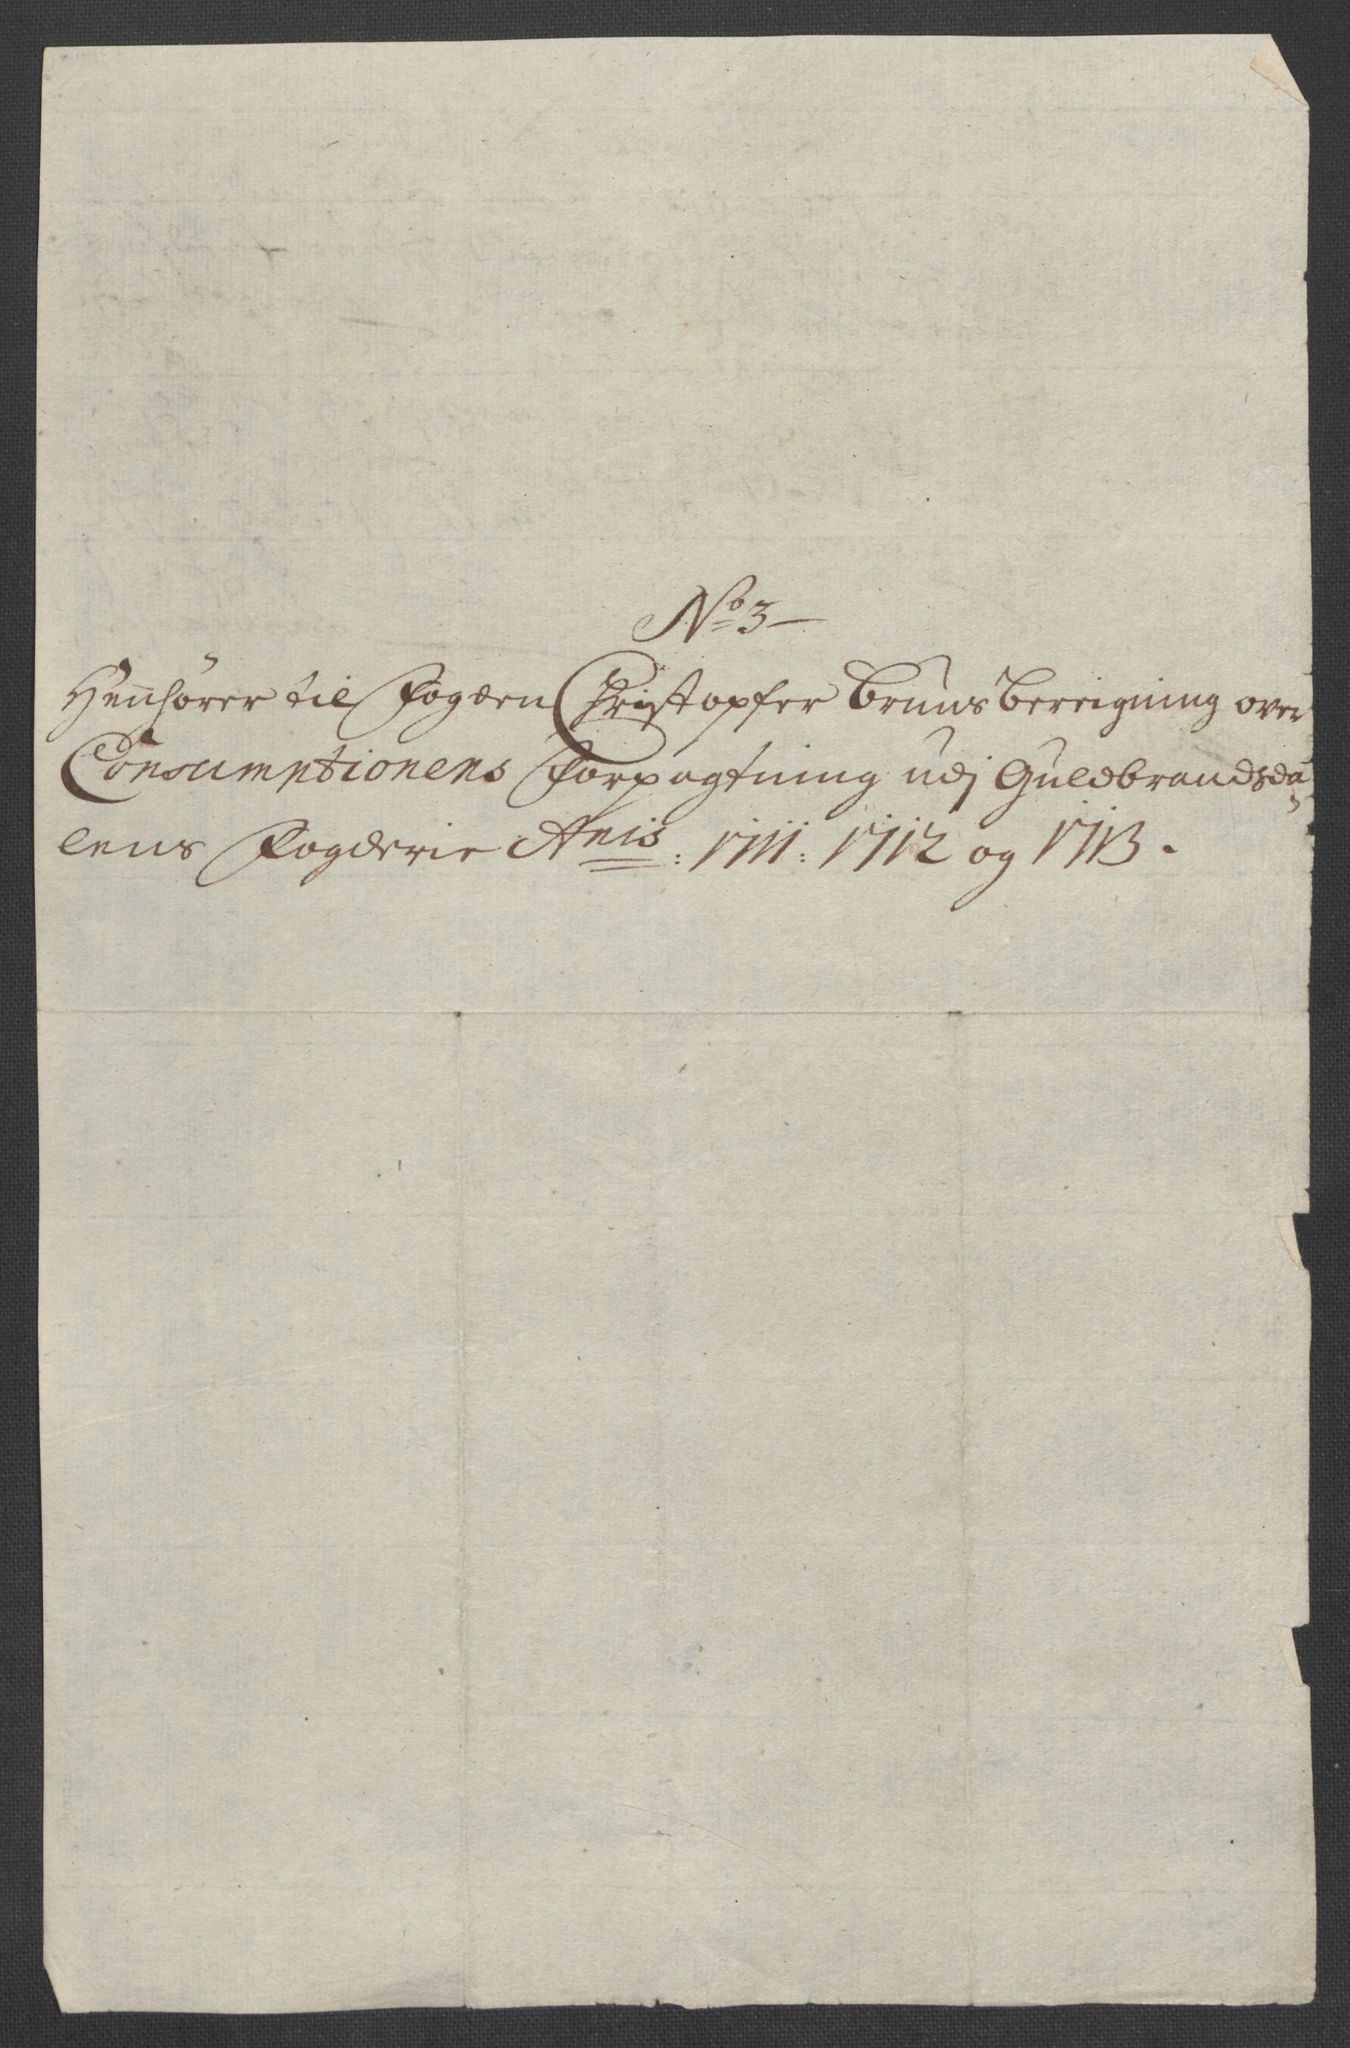 No 3
Henhører til Fogden Christopher Bruuns bereigning over
Consumptionens Forpagtning udj Guldbrandsda-
lens Fogderie Anis: 1711: 1712 og 1713.